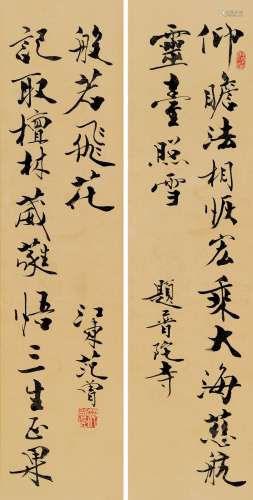 仰瞻法相恢宏乘大海慈航
靈臺照雪
題普陀寺
記取檀林葳蕤悟三生正果
般若飛花
江東范曾